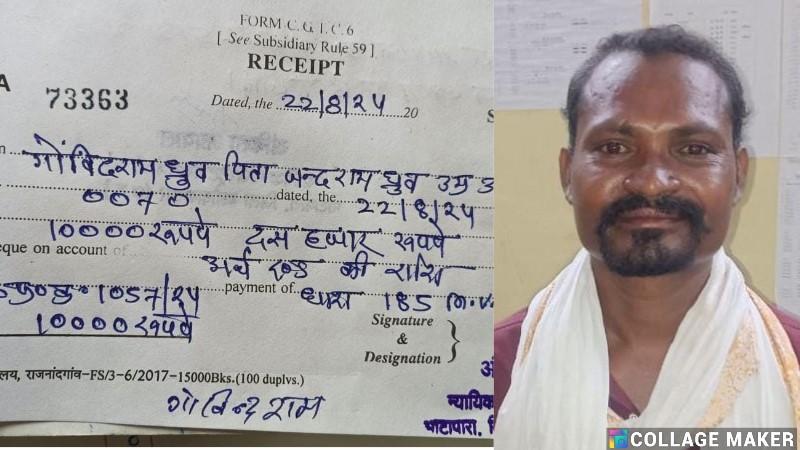 FORM C. G. T. C. 6
[ See Subsidiary Rule 59 ]
RECEIPT
A 73363 Dated, the 22/8/24 20 S
n गोविंदराम ध्रुव पिता चन्दराम ध्रुव उम्र
0070 dated, the 22/8/24
10000 रुपये दस हजार रूपये
eque on account of अर्थ दण्ड की राशि
1057/24 payment of धारा 185 M.V
10000 रुपये
Signature
&
Designation
लय, राजनांदगांव-FS/3-6/2017-15000Bks.(100 duplvs.)
गोविन्द राम
न्यायिक
भाटापारा,
COLLAGE MAKER